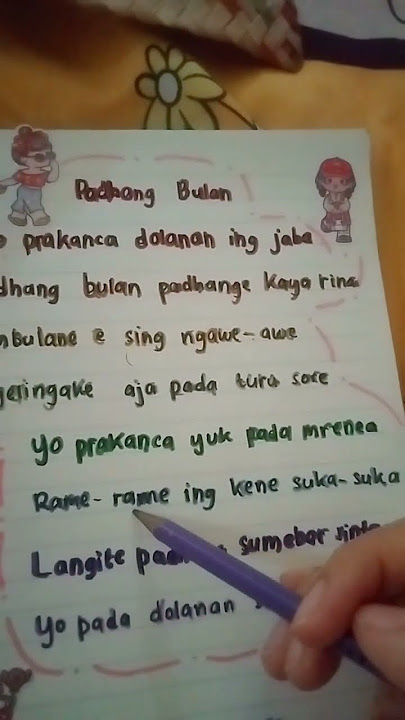 Padhang Bulan
prakanca dolanan ing jaba
dhang bulan padhange kaya rina
mbulane e sing ngawe-awe
ngelingake aja pada turu sore
Yo prakanca yuk pada mrenea
Rame-rame ing kene suka-suka
Langite sumebar
Yo pada dolanan